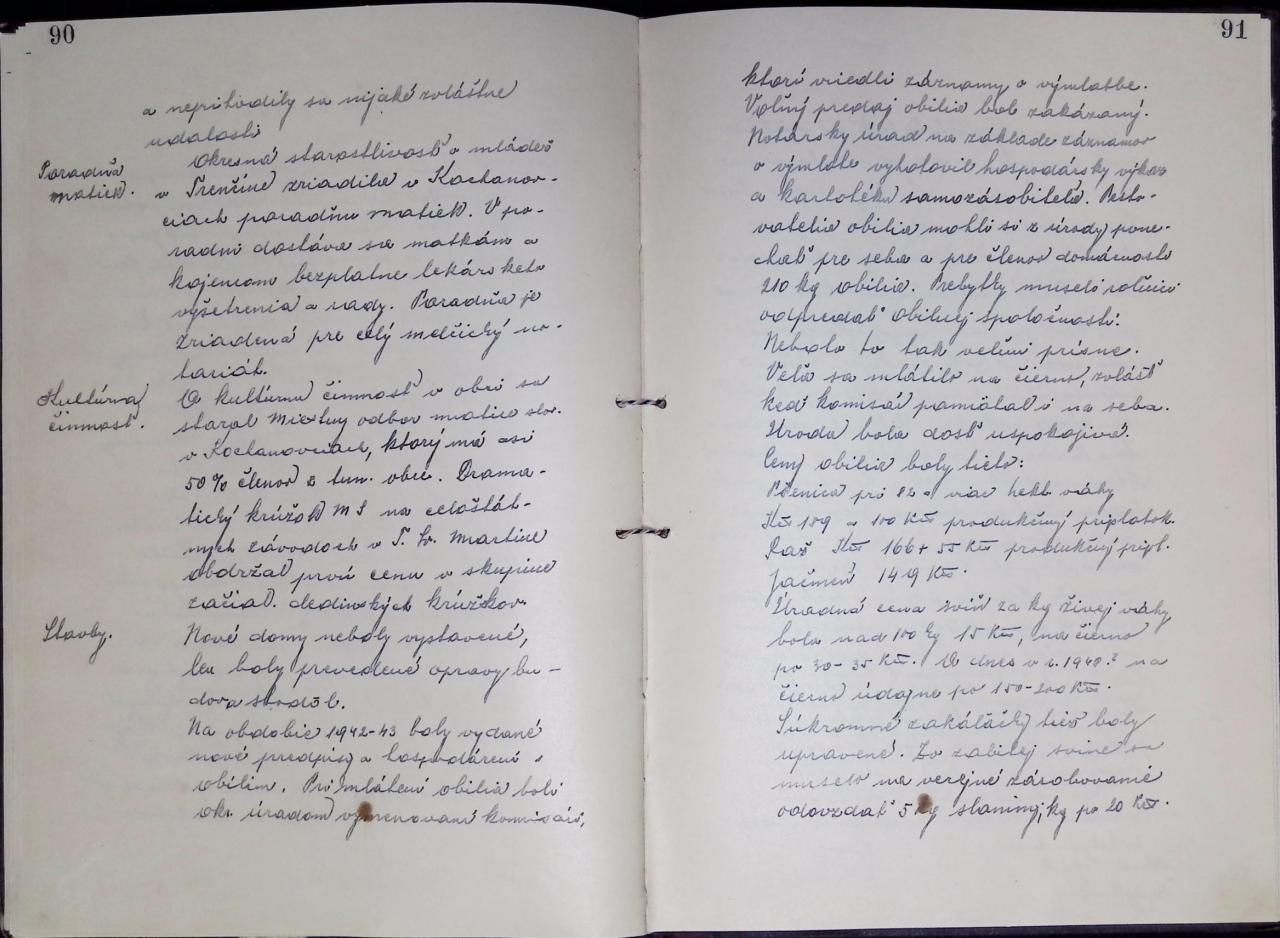 90
a neprihodily sa nijaké zvláštne
udalosti
Poradňa
matiek.
Okresná starostlivosť o mládež
v Trenčíne zriadila v Kochanov-
ciach poradňu matiek. V po-
radni dostáva sa matkám a
kojencom bezplatne lekárskeho
vyšetrenia a rady. Poradňa je
zriadená pre celý melčický no-
tariát.
Kultúrna
činnosť.
O kultúrnu činnosť v obci sa
staral Miestny odbor matice slov.
v Kochanovciach, ktorý má asi
50% členov z tun. obce. Drama-
tický krúžok MS na celoštát-
nych závodoch v T. Sv. Martine
obdržal prvú cenu v skupine
začiat. dedinských krúžkov.
Stavby.
Nové domy neboly vystavené,
len boly prevedené opravy bu-
dov a stodôl.
Na obdobie 1942-43 boly vydané
nové predpisy o hospodárení s
obilím. Pri mlátení obilia boli
okr. úradom vymenovaní komisári,
91
ktorí viedli záznamy o výmlatbe.
Voľný predaj obilia bol zakázaný.
Notársky úrad na základe záznamov
o výmlate vyhotovil hospodársky výkaz
a kartotéku samozásobiteľa. Pesto-
vatelia obilia mohli si z úrody pone-
chať pre seba a pre členov domácnosti
210 kg obilia. Prebytky museli roľníci
odpredať Obilnej spoločnosti.
Nebolo to tak veľmi prísne.
Veľa sa mlátilo na čierno, zvlášť
keď komisár pamätal i na seba.
Úroda bola dosť uspokojivá.
Ceny obilia boly tieto:
Pšenica pri 82 a viac hekt. váhy
Ks 189 a 100 Ks produkčný príplatok.
Raž Ks 166 + 55 Ks produkčný prípl.
Jačmeň 149 Ks.
Úradná cena svíň za kg živej váhy
bola nad 100 kg 15 Ks, na čierno
po 30-35 Ks. A dnes v r. 1948.? na
čierno údajne po 150-200 Ks.
Súkromné zakáľačky tiež boly
upravené. Zo zabitej svine sa
muselo na verejné zásobovanie
odovzdať 5 kg slaniny, kg po 20 Ks.